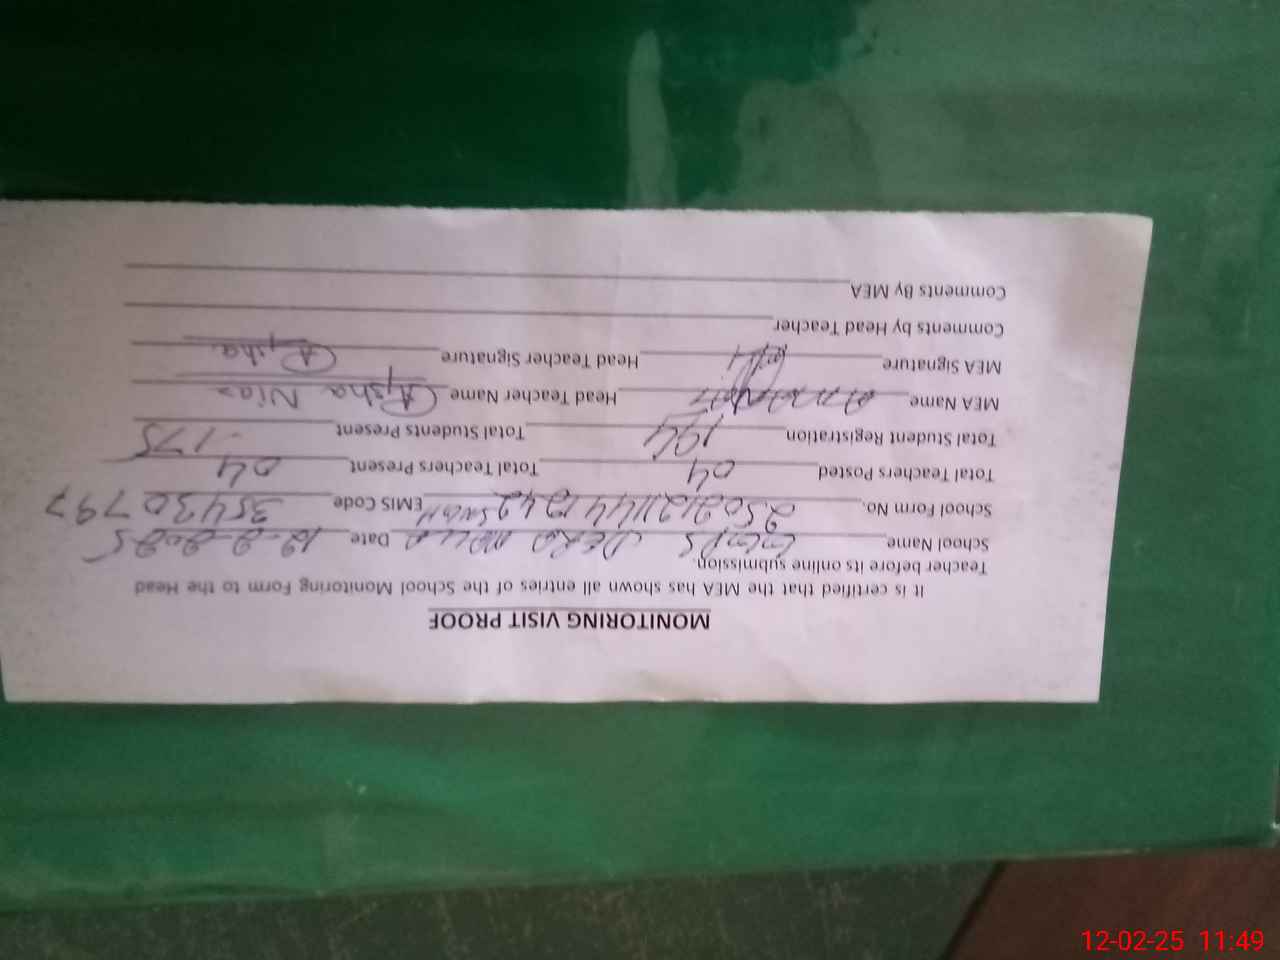 MONITORING VISIT PROOF
It is certified that the MEA has shown all entries of the School Monitoring Form to the Head
Teacher before its online submission.
School Name GGPS DERA Date 12-2-2025
School Form No. EMIS Code 35430797
Total Teachers Posted 04 Total Teachers Present 04
Total Student Registration 194 Total Students Present 175
MEA Name Head Teacher Name Aysha Niaz
MEA Signature Head Teacher Signature Aysha
Comments by Head Teacher
Comments By MEA
12-02-25 11:49